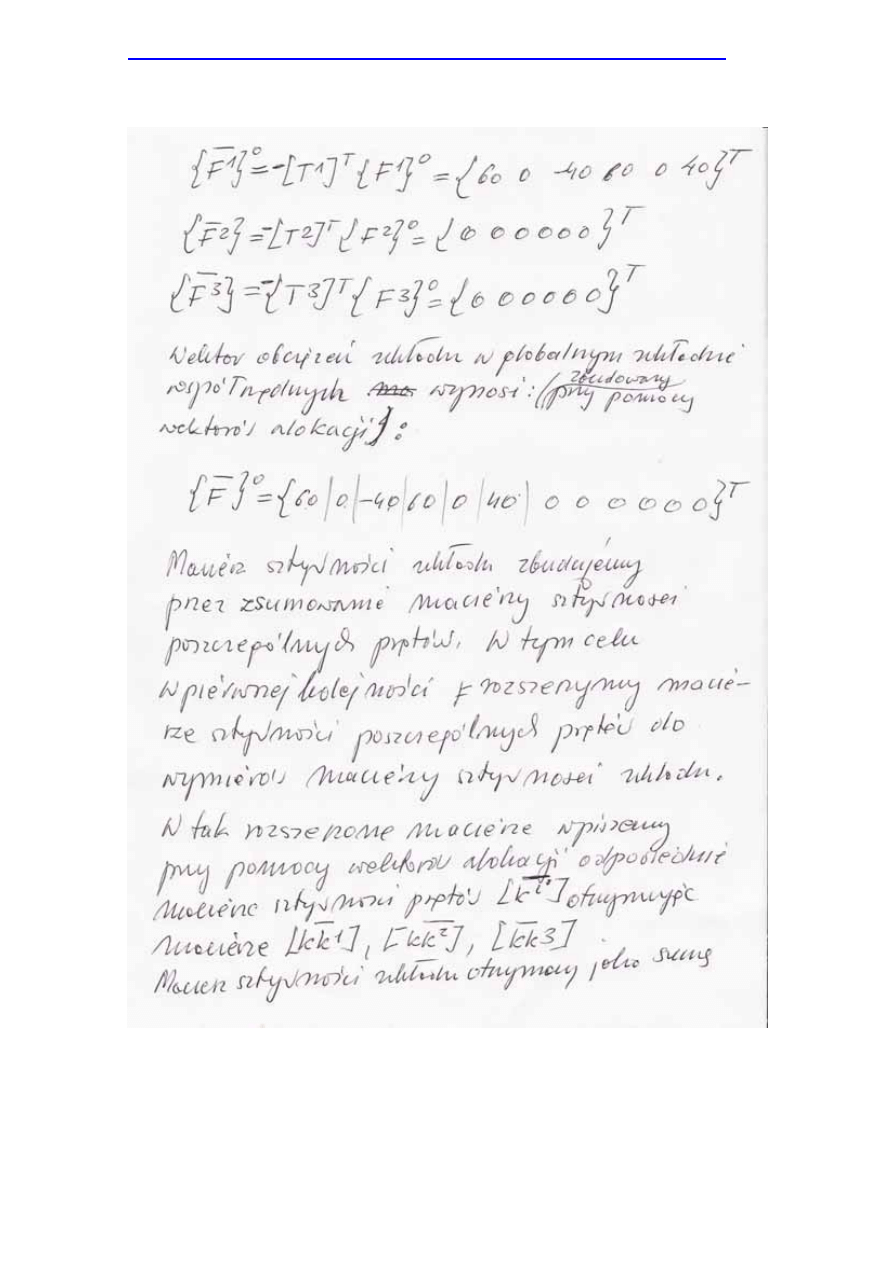 {F̅1}⁰=-[T1]ᵀ{F1}⁰={60 0 -40 60 0 40}ᵀ
{F̅2}=-[T2]ᵀ{F2}⁰={0 0 0 0 0 0}ᵀ
{F̅3}=-{T3]ᵀ{F3}⁰={0 0 0 0 0 0}ᵀ
Wektor obciążeń układu w globalnym układzie
współrzędnych wynosi: (zbudowany
przy pomocy
wektorów alokacji):
{F̅}⁰={60|0|-40|60|0|40|0 0 0 0 0 0}ᵀ
Macierz sztywności układu zbudujemy
przez zsumowanie macierzy sztywności
poszczególnych prętów. W tym celu
w pierwszej kolejności rozszerzymy macie-
rze sztywności poszczególnych prętów do
wymiarów macierzy sztywności układu.
W tak rozszerzone macierze wpiszemy
przy pomocy wektorów alokacji odpowiednie
macierze sztywności prętów [k̅ⁱ] otrzymując
macierze [k̅k̅1], [k̅k̅²], [k̅k̅3]
Macierz sztywności układu otrzymamy jako sumę